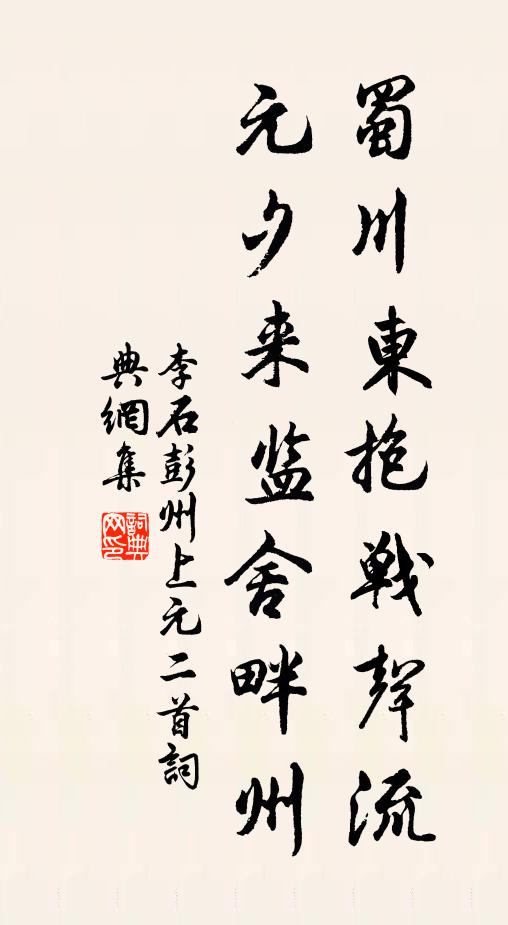 蜀川東抱戰聲流
元夕来监舍畔州
李石彭州上元二首詞
典網集
詞典網印